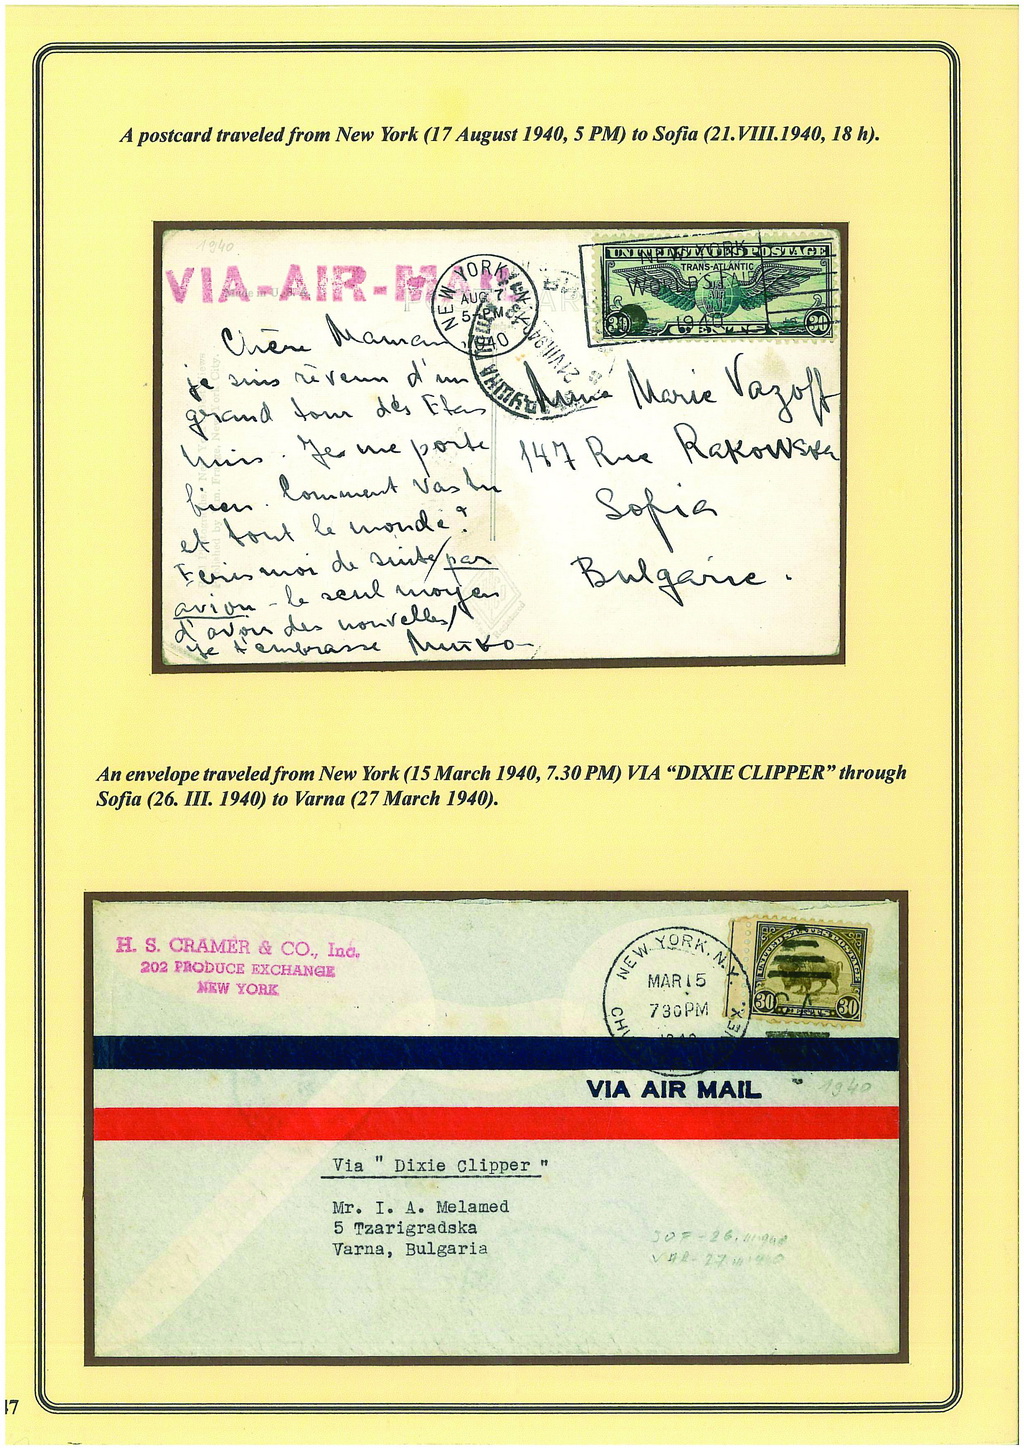 A postcard traveled from New York (17 August 1940, 5 PM) to Sofia (21.VIII.1940, 18 h).
1940
VIA-AIR-MAIL
NEW YORK, N.Y.
AUG 7
5-PM
1940
NEW YORK
WORLD'S FAIR
1940
UNITED STATES POSTAGE
TRANS-ATLANTIC
30 CENTS 30
21.VIII.940
Chère Maman
je suis revenu d'un
grand tour dés Etas
Unis. Je me porte
bien. Comment vas tu
et tout le monde?
Ecris moi de suite/par
avion - le seul moyen
d'avoir des nouvelles/
Je t'embrasse
Mme Marie Vazoff
147 Rue Rakowska
Sofia
Bulgarie.
An envelope traveled from New York (15 March 1940, 7.30 PM) VIA "DIXIE CLIPPER" through
Sofia (26. III. 1940) to Varna (27 March 1940).
H. S. CRAMER & CO., Inc.
202 PRODUCE EXCHANGE
NEW YORK
NEW YORK, N.Y.
MAR 15
730PM
1940
UNITED STATES POSTAGE
30 CENTS 30
VIA AIR MAIL
1940
Via " Dixie Clipper "
Mr. I. A. Melamed
5 Tzarigradska
Varna, Bulgaria
SOF - 26.III.1940
VAR - 27.III.1940
47